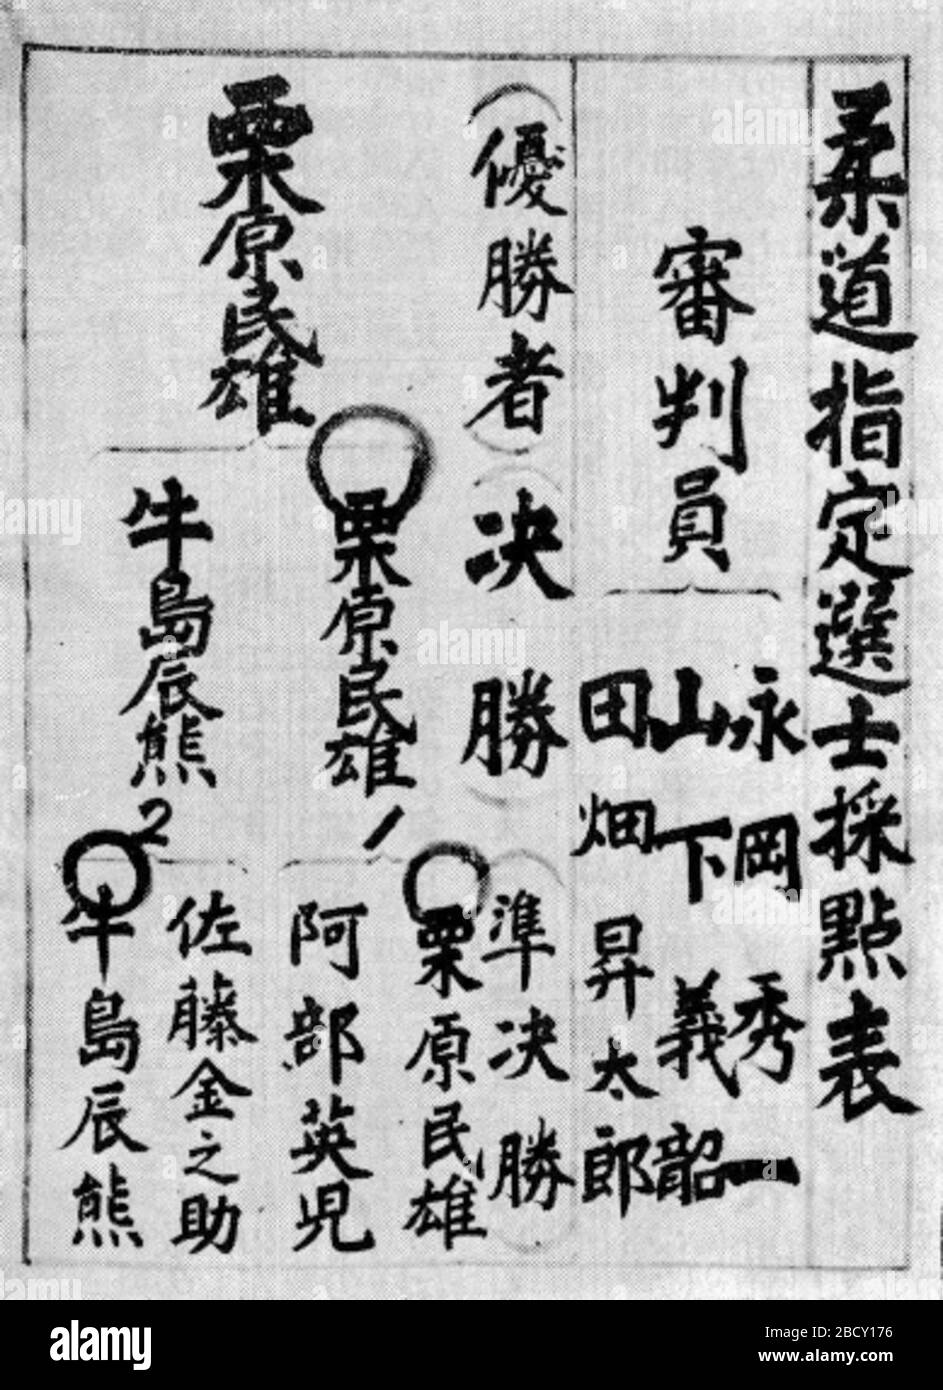 柔道指定選士採點表
審判員
永岡秀一
山下義韶
田畑昇太郎
(優勝者)
栗原民雄
(決勝)
栗原民雄
牛島辰熊
(準決勝)
1
栗原民雄
阿部英児
2
佐藤金之助
牛島辰熊
alamy
alamy
Image ID: 2BCY176
www.alamy.com